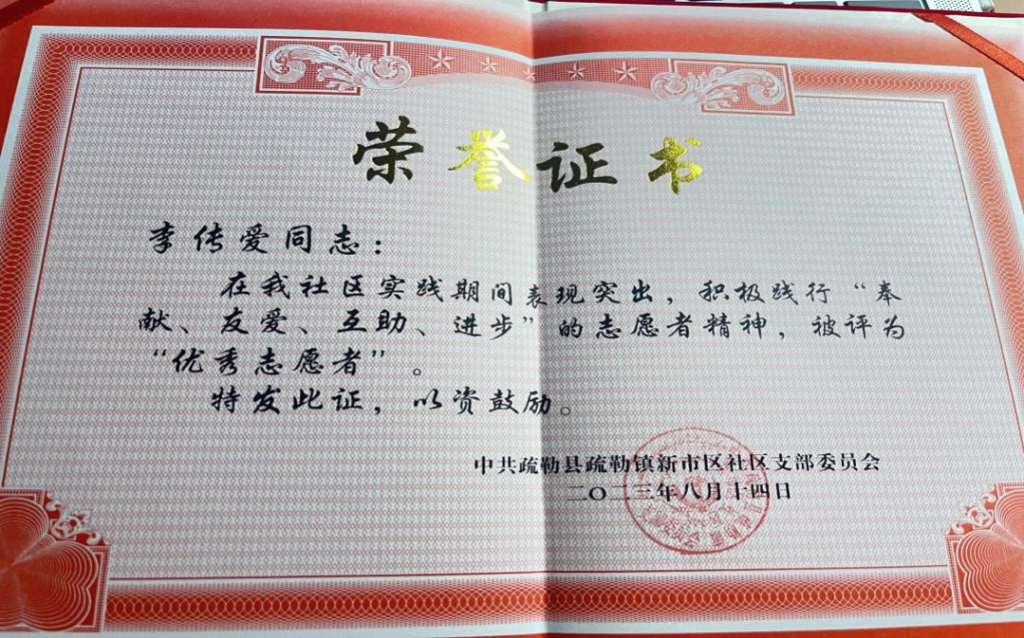 荣誉证书
李传爱同志：
在我社区实践期间表现突出，积极践行“奉
献、友爱、互助、进步”的志愿者精神，被评为
“优秀志愿者”。
特发此证，以资鼓励。
中共疏勒县疏勒镇新市区社区支部委员会
二〇二三年八月十四日